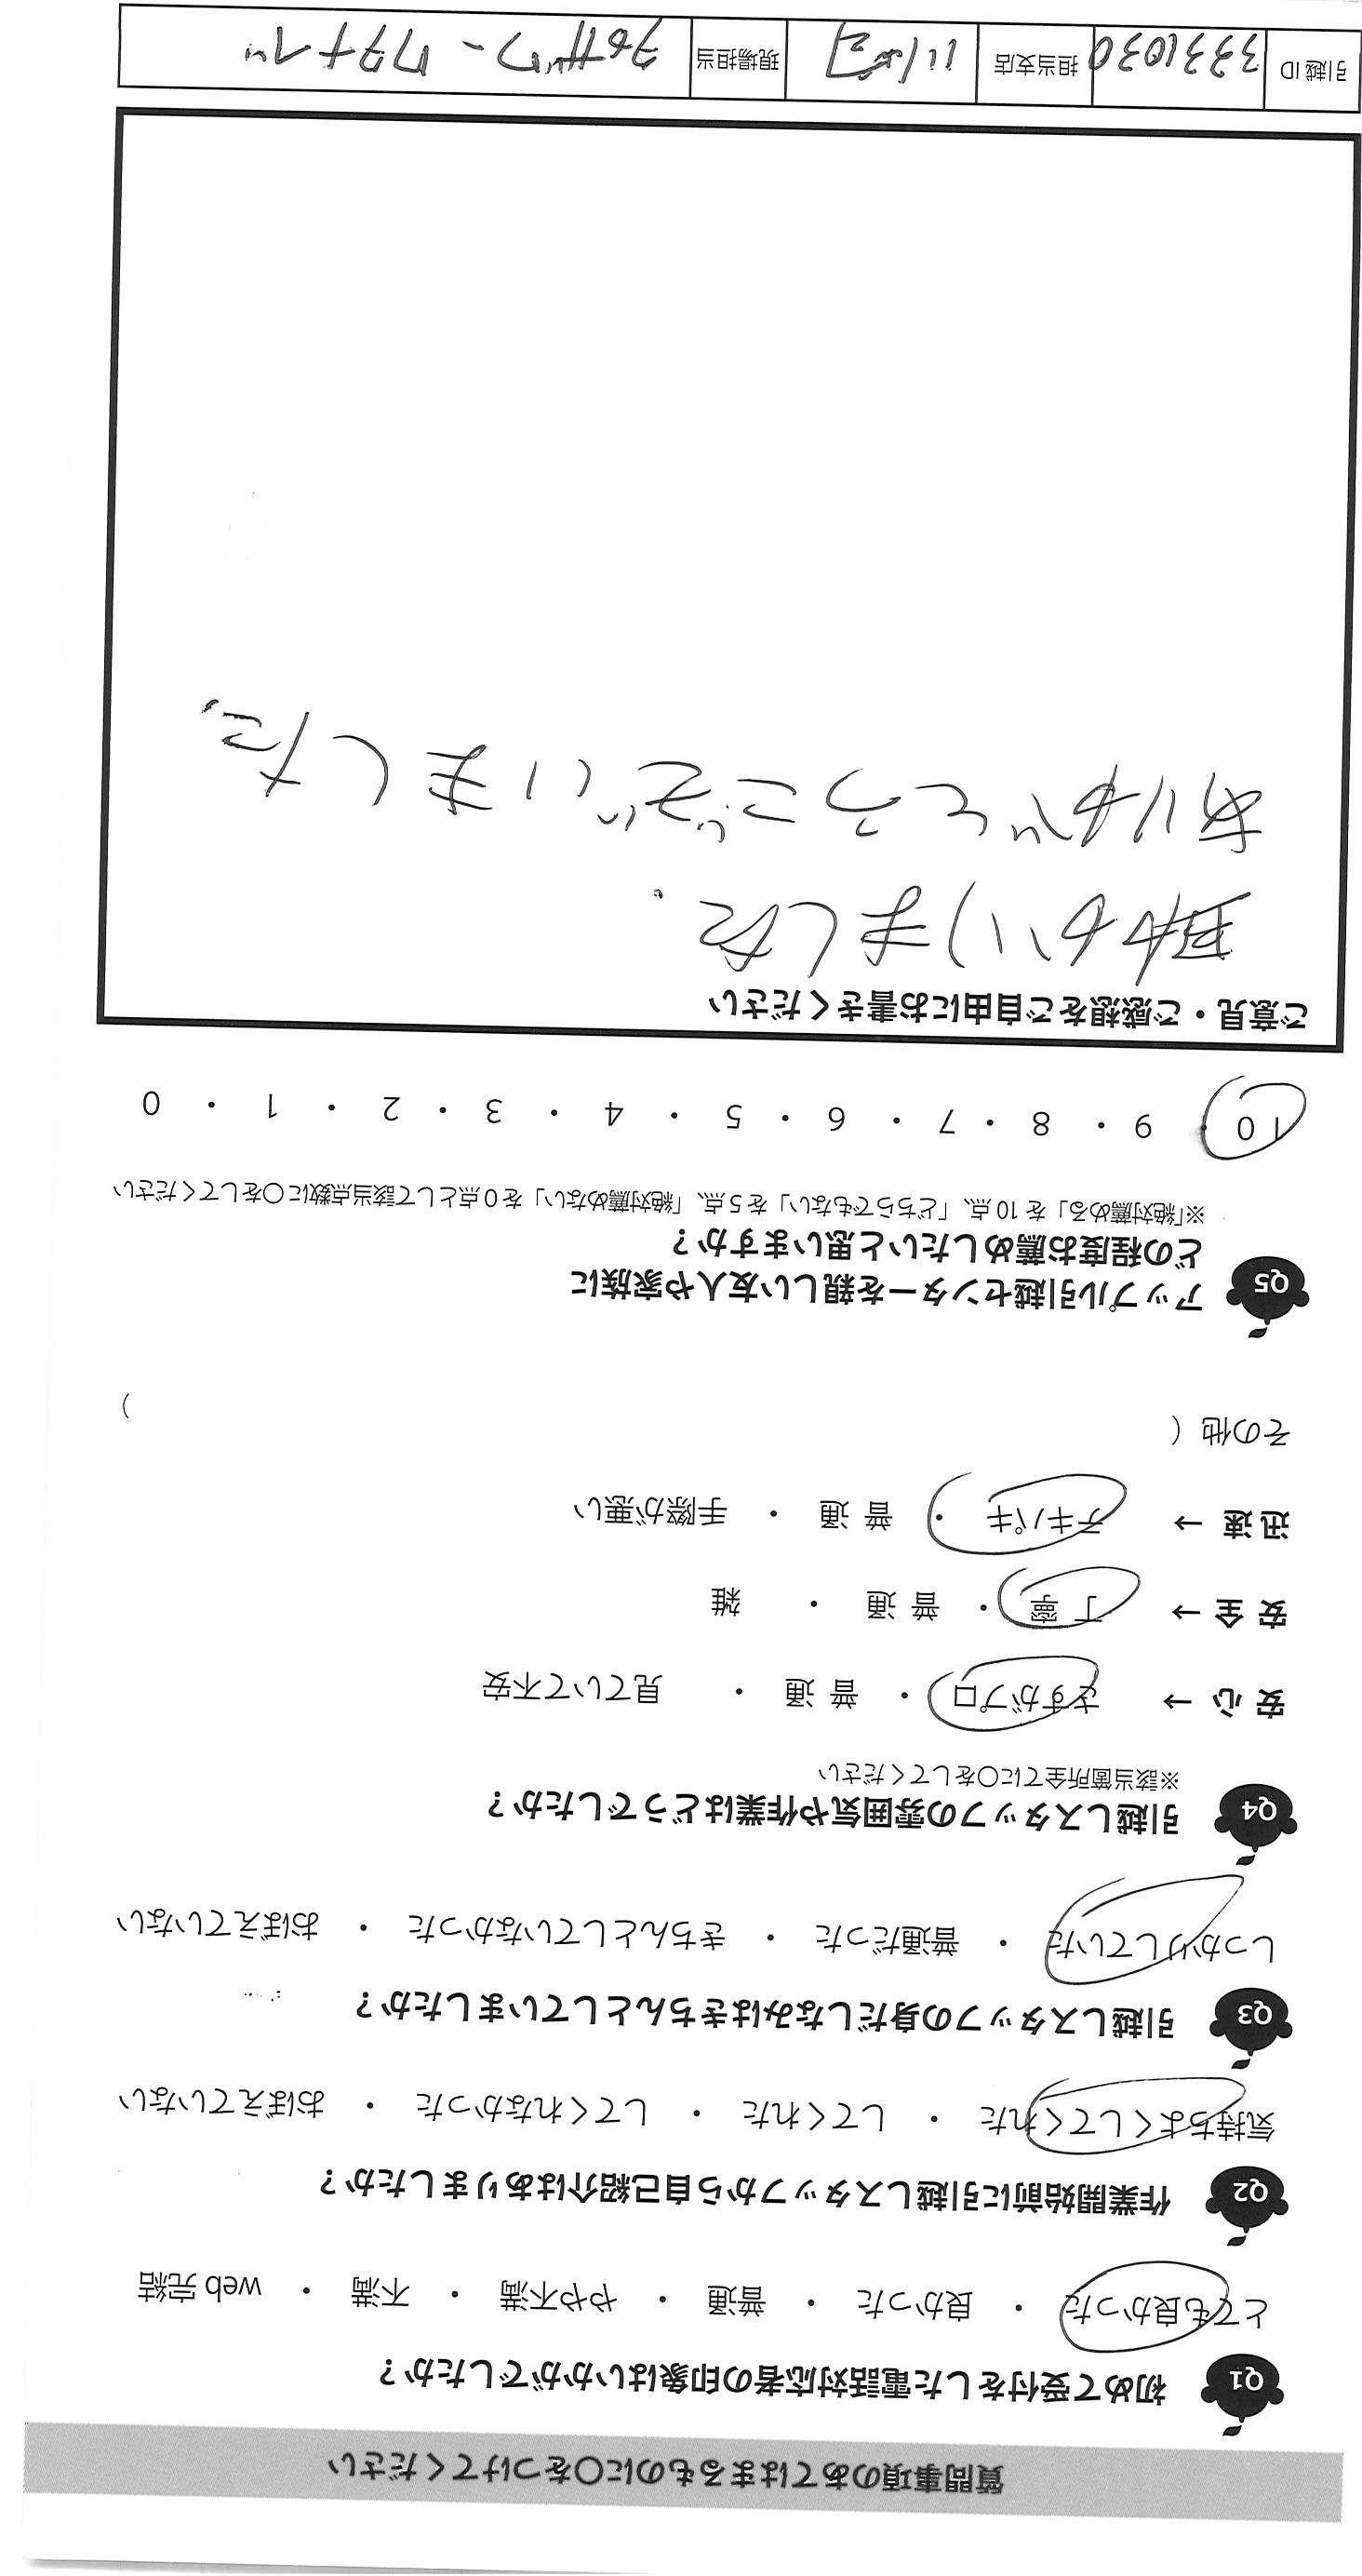 質問事項のあてはまるものに○をつけてください
Q1 初めて受付をした電話対応者の印象はいかがでしたか？
とても良かった ・ 良かった ・ 普通 ・ やや不満 ・ 不満 ・ web 完結
Q2 作業開始前に引越しスタッフから自己紹介はありましたか？
気持ちよくしてくれた ・ してくれた ・ してくれなかった ・ おぼえていない
Q3 引越しスタッフの身だしなみはきちんとしていましたか？
しっかりしていた ・ 普通だった ・ きちんとしていなかった ・ おぼえていない
Q4 引越しスタッフの雰囲気や作業はどうでしたか？
※該当箇所全てに○をしてください
安 心 → さすがプロ ・ 普 通 ・ 見ていて不安
安 全 → 丁 寧 ・ 普 通 ・ 雑
迅 速 → テキパキ ・ 普 通 ・ 手際が悪い
その他（ ）
Q5 アップル引越センターを親しい友人や家族に
どの程度お薦めしたいと思いますか？
※「絶対薦める」を 10 点、「どちらでもない」を 5 点、「絶対薦めない」を 0 点として該当点数に○をしてください
10 ・ 9 ・ 8 ・ 7 ・ 6 ・ 5 ・ 4 ・ 3 ・ 2 ・ 1 ・ 0
ご意見・ご感想をご自由にお書きください
助かりました.
ありがとうございました,
引越 ID 3331030 担当支店 現場担当 ワタナベ